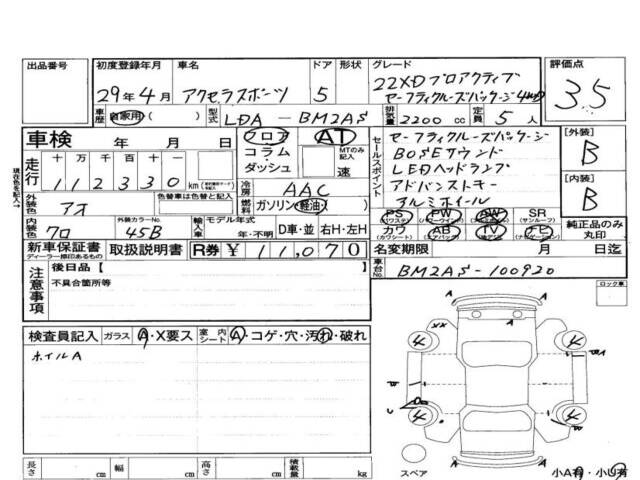 出品番号
初度登録年月 車名 ドア 形状 グレード 評価点
29年4月 アクセラスポーツ 5 22XDプロアクティブ
セーフティクルーズパッケージ4WD
3.5
車歴 自家用( ) 型式 LDA - BM2AS 排気量 2200 cc 定員 5人
車検 年 月 日 フロア AT
コラム・ダッシュ MTのみ記入 速
走行 十万千百十 km
112330
現在色を記入→
外装色 アオ 色替車は色替と記入
冷房 AAC
燃料 ガソリン(軽油)
内装色 クロ 外装カラーNo. 45B 輸入車 モデル年式 年・不明 D車・並 右H・左H
セールスポイント
セーフティクルーズパッケージ
BOSEサウンド
LEDヘッドランプ
アドバンストキー
アルミホイール
[外装] B
[内装] B
PS PW AW SR
(パワステ) (サンルーフ)
カワ AB TV ナビ
(カワシート) (エアバック) (ナビゲーション)
純正品のみ丸印
新車保証書 取扱説明書 R券 ¥ 11,070
ディーラー捺印あるもの
名変期限 月 日迄
車台No. BM2AS-100920
注意事項 後日品【
不具合箇所等
ロック車
検査員記入 ガラス A・X要ス 室内シート A・コゲ・穴・汚れ・破れ
ホイルA
A
A A
XX
4 4
W
4 4
A
長さ cm 幅 cm 高さ cm 積載量 kg
スペア
小A有・小U有